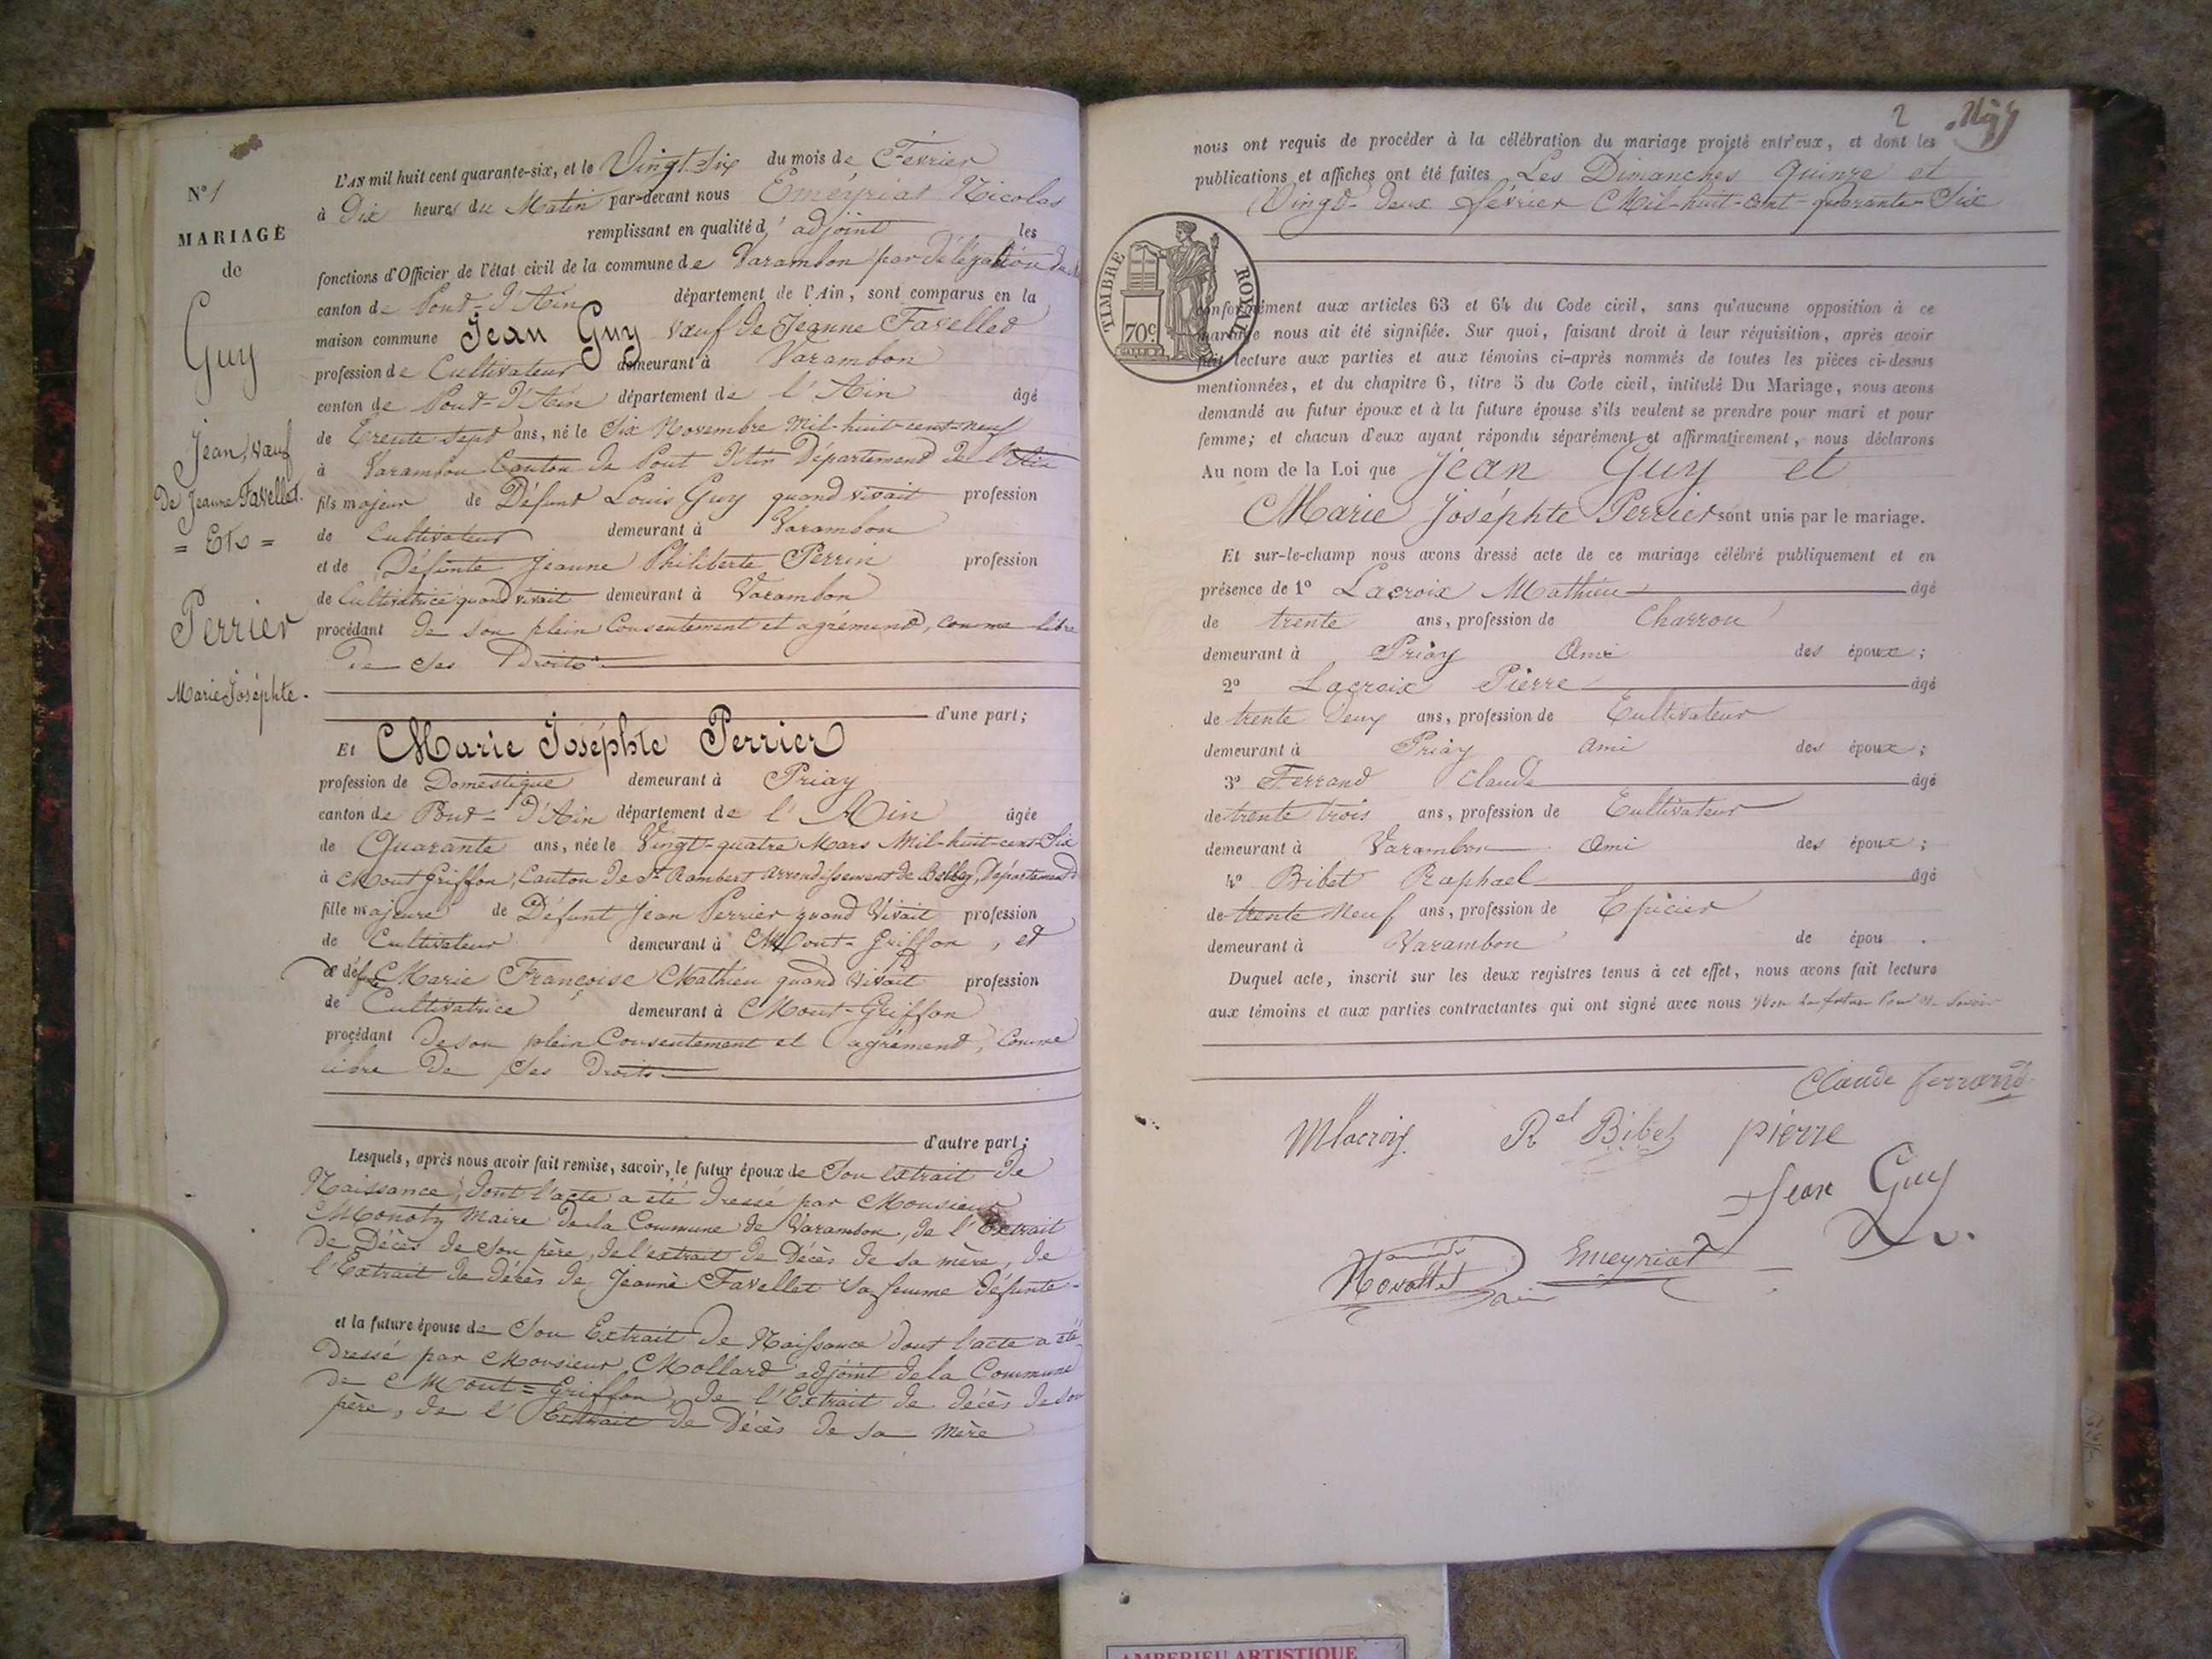 N° 1
MARIAGE
de
Guy
Jean, Vœuf
De Jeanne Favellet.
= Et =
Perrier
Marie Joséphte.
L'AN mil huit cent quarante-six, et le Vingt-Six du mois de Février
à Dix heures du Matin par-devant nous Eméyriat Nicolas
remplissant en qualité d'adjoint les
fonctions d'Officier de l'état civil de la commune de Varambon par délégation du
canton de Pont-d'Ain département de l'Ain, sont comparus en la
maison commune Jean Guy Vœuf de Jeanne Favellet
profession de Cultivateur demeurant à Varambon
canton de Pont-d'Ain département de l'Ain âgé
de Trente Sept ans, né le Six Novembre Mil-huit-cent-neuf
à Varambon Canton de Pont d'Ain Département de l'Ain
fils majeur de Défunt Louis Guy quand vivait profession
de Cultivateur demeurant à Varambon
et de Défunte Jeanne Philiberte Perrin profession
de Cultivatrice quand vivait demeurant à Varambon
procédant de son plein Consentement et agrément, comme libre
De Ses Droits
d'une part;
Et Marie Joséphte Perrier
profession de Domestique demeurant à Priay
canton de Pont-d'Ain département de l'Ain âgée
de Quarante ans, née le Vingt-quatre Mars Mil-huit-cent-Six
à Mont Griffon, Canton de St Rambert arrondissement de Belley, Département
fille majeure de Défunt Jean Perrier quand Vivait profession
de Cultivateur demeurant à Mont-Griffon, et
de défte Marie Françoise Mathieu quand Vivait profession
de Cultivatrice demeurant à Mont-Griffon
procédant de son plein Consentement et agrément, Comme
libre De Ses Droits
d'autre part;
Lesquels, après nous avoir fait remise, savoir, le futur époux de Son extrait de
Naissance, dont l'acte a été dressé par Monsieur
Monoty Maire de la Commune de Varambon, de l'Extrait
de Décès de Son père, de l'extrait de Décès de sa mère, de
l'Extrait de décès de Jeanne Favellet Sa femme défunte
et la future épouse de Son Extrait De Naissance dont l'acte a été
Dressé par Monsieur Mollard adjoint de la Commune
de Mont=Griffon, de l'Extrait de décès de son
père, de l'Extrait de Décès de sa mère
2
nous ont requis de procéder à la célébration du mariage projeté entr'eux, et dont les
publications et affiches ont été faites Les Dimanches Quinze et
Vingt-deux février Mil-huit-cent-quarante-Six
TIMBRE ROYAL
70c.
conformément aux articles 63 et 64 du Code civil, sans qu'aucune opposition à ce
mariage nous ait été signifiée. Sur quoi, faisant droit à leur réquisition, après avoir
fait lecture aux parties et aux témoins ci-après nommés de toutes les pièces ci-dessus
mentionnées, et du chapitre 6, titre 5 du Code civil, intitulé Du Mariage, nous avons
demandé au futur époux et à la future épouse s'ils veulent se prendre pour mari et pour
femme; et chacun d'eux ayant répondu séparément et affirmativement, nous déclarons
Au nom de la Loi que Jean Guy et
Marie Joséphte Perrier sont unis par le mariage.
Et sur-le-champ nous avons dressé acte de ce mariage célébré publiquement et en
présence de 1° Lacroix Mathieu âgé
de trente ans, profession de Charron
demeurant à Priay Ami des époux;
2° Lacroix Pierre âgé
de trente Deux ans, profession de Cultivateur
demeurant à Priay ami des époux;
3° Ferrand Claude âgé
de trente trois ans, profession de Cultivateur
demeurant à Varambon Ami des époux;
4° Bibet Raphael âgé
de trente Neuf ans, profession de Epicier
demeurant à Varambon de épou .
Duquel acte, inscrit sur les deux registres tenus à cet effet, nous avons fait lecture
aux témoins et aux parties contractantes qui ont signé avec nous
Claude ferrand
Mlacroix Rel Bibet pierre
Jean Guy
Emeyriat
AMBERIEU ARTISTIQUE